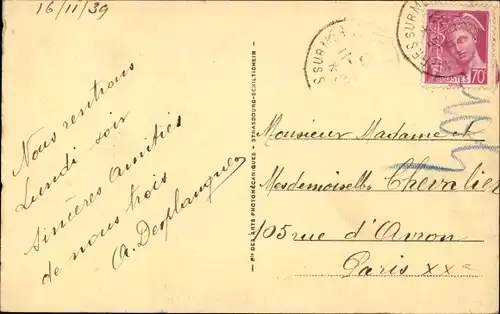 16/11/39
Nous rentrons
Lundi soir
Sincères amitiés
de nous trois
A. Desplanques
Sté DES ARTS PHOTOMÉCANIQUES - STRASBOURG-SCHILTIGHEIM
S SUR M
ES SUR M
POSTES 70c
Monsieur Madame et
Mesdemoiselles Chevalier
105 rue d'Avron
Paris XXe